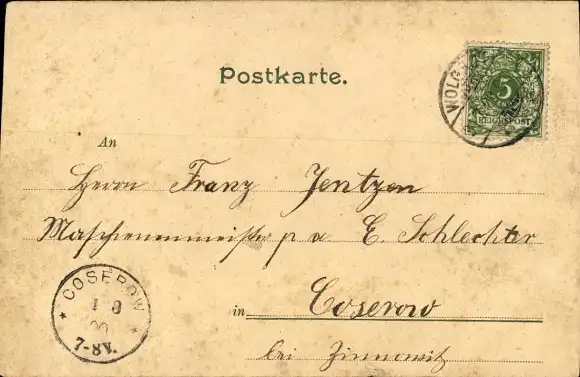 Postkarte.
5
REICHSPOST
WOLG
An
Herrn Franz Jentzen
Maschienenmeister p a E. Schlechter
in Coserow
bei Zinnowitz
COSEROW
1 8
7-8V.